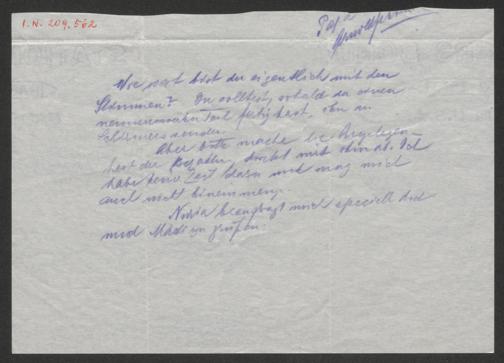 I.N. 209.562
Papa
Wie weit bist du eigentlich mit den
Stimmen? Du solltest, sobald du einen
nennenswerten Teil fertig hast, ihn an
Schirmer senden.
Aber bitte mache die Angelegen-
heit der direkt mit ihm ab. Ich
habe keine Zeit dazu und mag mich
auch nicht einmengen.
Nuria beauftragt mich speciell dich
und Mädi zu grüßen.